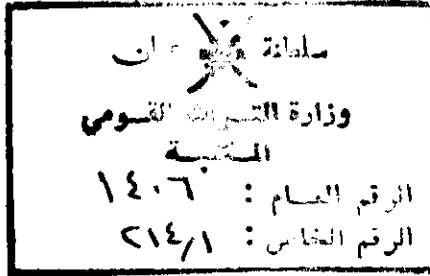 سلطنة عمان
وزارة التراث القومي
المكتبة
الرقم العام : ١٤٠٦
الرقم الخاص : ٢١٤/١